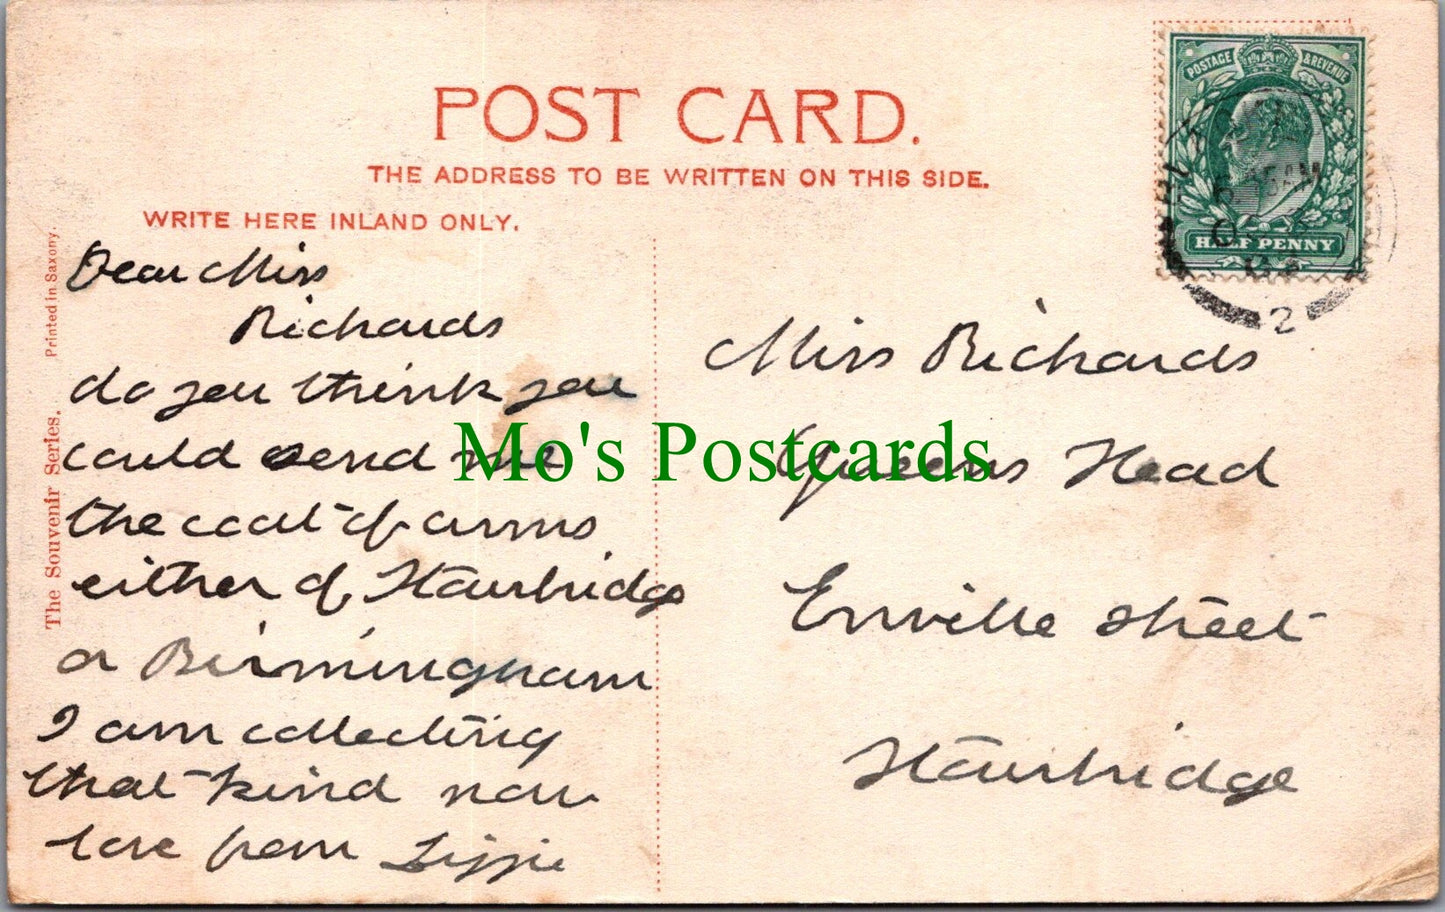 POST CARD.
THE ADDRESS TO BE WRITTEN ON THIS SIDE.
WRITE HERE INLAND ONLY.
POSTAGE & REVENUE
HALF PENNY
2
The Souvenir Series. Printed in Saxony.
Dear Miss
Richards
do you think you
could send me
the coat of arms
either of Stourbridge
or Birmingham
I am collecting
that kind now
love from Lizzie
Miss Richards
Queens Head
Enville Street
Stourbridge
Mo's Postcards